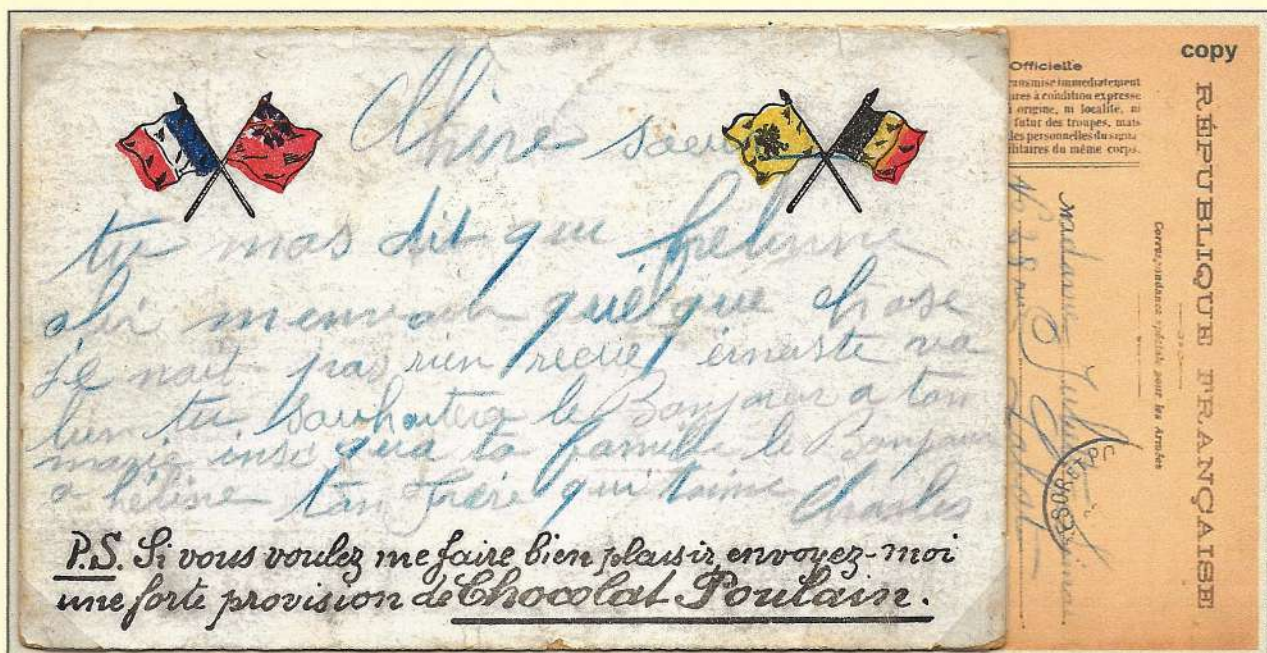 Chère sœur
tu mas dit que helinne
menvoi quelque chose
Je nait pas rien recue ernaste va
bien tu souhaitera le Bonjour a ton
marie insi qua ta famille le Bonjour
a héline ton Frère qui taime Charles
P.S. Si vous voulez me faire bien plaisir, envoyez-moi
une forte provision de Chocolat Poulain.
copy
RÉPUBLIQUE FRANÇAISE
Correspondance spéciale pour les Armées
Officielle
transmise immediatement
à condition expresse
origine, ni localite, ni
futur des troupes, mais
des personnelles du
militaires du même corps.
madame